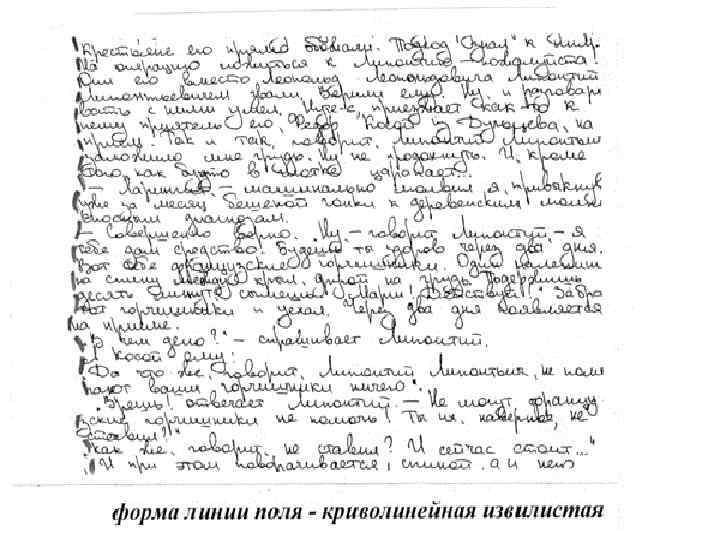 Крестьяне его прямо боготв. Подход к ним.
На операцию ложиться к Липонтию пожалуйста!
Они его вместо Леопольд Леопольдовича Липонтий
Липонтьевичем звали. Верили ему. Ну, и разговари
вать с ними умел. Итак, приезжает как то к
нему приятель его, Федор Косой из Дуношева, на
прием. Так и так, говорит, Липонтий Липонтьич
заложило мне грудь. Ну не продохнуть. И, кроме
того, как будто в глотке царапает...
— Ларингит, — машинально сказал я, привыкнув
уже за месяц бешеной гонки к деревенским
диагнозам.
— Совершенно верно. "Ну, — говорит Липонтий, — я
тебе дам средство. Будешь ты здоров через два дня.
Вот тебе французские горчишники. Один налепишь
на спину между крыл, другой на грудь. Подержишь
десять минут, сымешь. Марш! Действуй!" Забра
тот горчишники и уехал. Через два дня появляется
на приеме.
"В чем дело?" — спрашивает Липонтий.
А Косой ему:
"Да что ж, говорит, Липонтий Липонтьич, не помо
гают ваши горчишники ничего".
"Врешь! отвечает Липонтий. — Не могут францу
зские горчишники не помочь! Ты их, наверное, не
ставил?"
"Как же, говорит, не ставил? И сейчас стоит..."
И при этом поворачивается спиной, а у него
форма линии поля - криволинейная извилистая